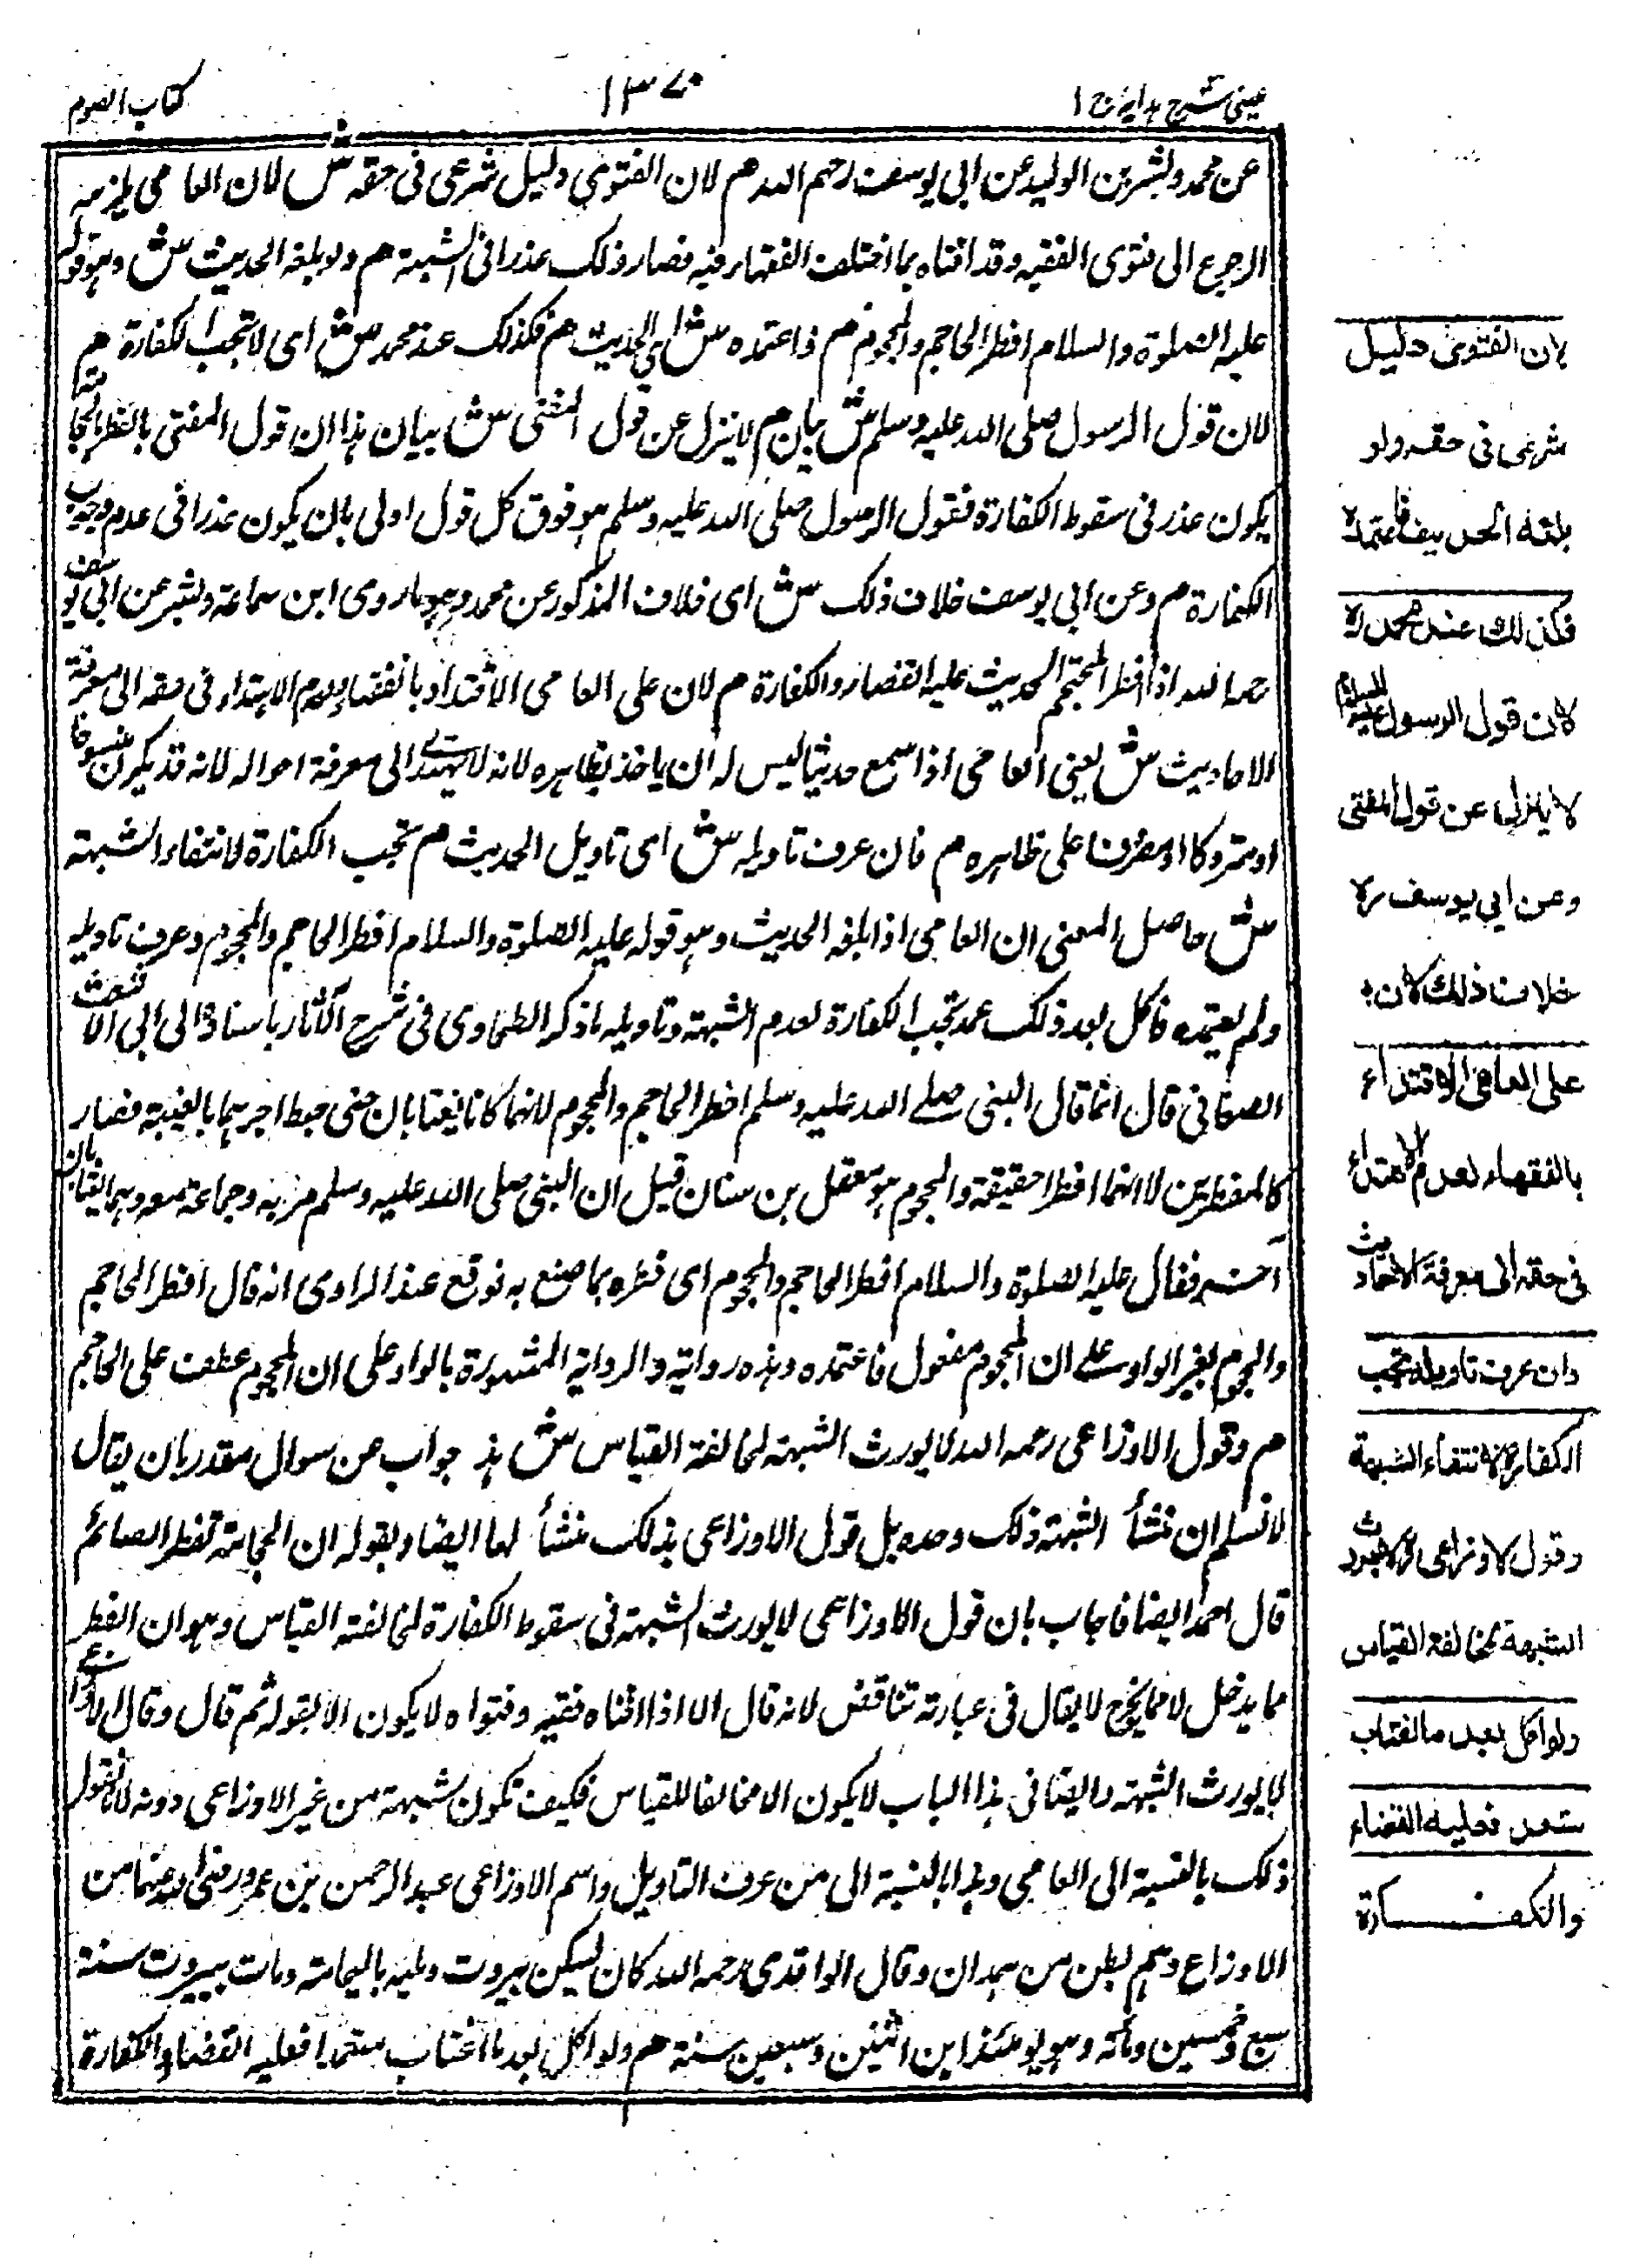 عینی شرح ہدایہ ج ۱
۱۳۷۰
کتاب الصوم
عن محمد وبشر بن الولید عن ابی یوسف رحمہم اللہ م لان الفتوی دلیل شرعی فی حقہ ش لان العامی یلزمہ
الرجوع الی فتوی الفقیہ وقد افتاہ بما اختلف الفقہاء فیہ فصار ذلک عذرا فی الشبہۃ م ولو بلغہ الحدیث ش وہو قولہ
علیہ الصلوۃ والسلام افطر الحاجم والمحجوم م فاعتمدہ ش ای الحدیث م فکذلک عند محمد ش ای لا تجب الکفارۃ م
لان قول الرسول صلی اللہ علیہ وسلم ش بان م لا ینزل عن قول المفتی ش بیان ہذا ان قول المفتی بالفطر بالحجامۃ
یکون عذر فی سقوط الکفارۃ فقول الرسول صلی اللہ علیہ وسلم ہو فوق کل قول اولی بان یکون عذرا فی عدم وجوب
الکفارۃ م وعن ابی یوسف خلاف ذلک ش ای خلاف المذکور عن محمد وہو ما روی ابن سماعۃ وبشر عن ابی یوسف
رحمہ اللہ اذا افطر المحتجم الحدیث علیہ القضاء والکفارۃ م لان علی العامی الاقتداء بالفقہاء لعدم الاہتداء فی حقہ الی معرفۃ
الاحادیث ش یعنی العامی اذا سمع حدیثا لیس لہ ان یاخذ بظاہرہ لانہ لا یہتدی الی معرفۃ احوالہ لانہ قد یکون منسوخا
او متروکا او مصروفا علی ظاہرہ م فان عرف تاویلہ ش ای تاویل الحدیث م تجب الکفارۃ لانتفاء الشبہۃ
ش حاصل المعنی ان العامی اذا بلغہ الحدیث وہو قولہ علیہ الصلوۃ والسلام افطر الحاجم والمحجوم وعرف تاویلہ
ولم یعتمدہ فاکل بعد ذلک عمد تجب الکفارۃ لعدم الشبہۃ وتاویلہ ما ذکر الطحاوی فی شرح الآثار باسنادہ الی ابی الاشعث
الصنعانی قال انما قال النبی صلے اللہ علیہ وسلم افطر الحاجم والمحجوم لانہما کانا یغتابان حتی حبط اجرہما بالغیبۃ فصار
کالمفطرین لا انہما افطرا حقیقۃ والمحجوم ہو معقل بن سنان قیل ان النبی صلی اللہ علیہ وسلم مر بہ وجماعۃ معہ وہما یغتابان
آخر فقال علیہ الصلوۃ والسلام افطر الحاجم والمحجوم ای فطرہ بما صنع بہ فوقع عند الراوی انہ قال افطر الحاجم
والمحجوم بغیر الواو علے ان المحجوم مفعول فاعتمدہ وہذہ روایۃ والروایۃ المشہورۃ بالواو علی ان المحجوم عطف علی الحاجم
م وقول الاوزاعی رحمہ اللہ لا یورث الشبہۃ لمخالفۃ القیاس ش ہذ جواب عن سوال مقدر بان یقال
لا نسلم ان منشأ الشبہۃ ذلک وحدہ بل قول الاوزاعی بذلک منشأ لہا ایضا وبقولہ ان الحجامۃ تفطر الصائم
قال احمد ایضا فاجاب بان قول الاوزاعی لا یورث الشبہۃ فی سقوط الکفارۃ لمخالفتہ القیاس وہو ان الفطر
مما یدخل لا مما یخرج لا یقال فی عبارتہ تناقض لانہ قال الا اذا افتاہ فقیہ وفتواہ لا یکون الا بقولہ ثم قال وقال الاوزاعی
لا یورث الشبہۃ وایضا فی ہذا الباب لا یکون الا مخالفا للقیاس فکیف تکون شبہۃ من غیر الاوزاعی دونہ لانا نقول
ذلک بالنسبۃ الی العامی وہذا بالنسبۃ الی من عرف التاویل واسم الاوزاعی عبد الرحمن بن عمرو رضی اللہ عنہما من
الاوزاع وہم بطن من ہمدان وقال الواقدی رحمہ اللہ کان یسکن بیروت وعلیہ بالیمامۃ ومات ببیروت سنۃ
سبع وخمسین ومائۃ وہو یومئذ ابن اثنین وسبعین سنۃ م ولو اکل بعد ما اغتاب متعمدا فعلیہ القضاء والکفارۃ
لان الفتوی دلیل
شرعی فی حقہ ولو
بلغہ الحدیث فاعتمدہ
فکذلک عند محمد رہ
لان قول الرسول علیہ السلام
لا ینزل عن قول المفتی
وعن ابی یوسف رہ
خلاف ذلک لان
علی العامی الاقتداء
بالفقہاء لعدم الاہتداء
فی حقہ الی معرفۃ الاحادیث
وان عرف تاویلہ تجب
الکفارۃ لانتفاء الشبہۃ
وقول الاوزاعی رہ لا یورث
الشبہۃ لمخالفۃ القیاس
ولو اکل بعد ما اغتاب
متعمدا فعلیہ القضاء
والکفـــــارۃ